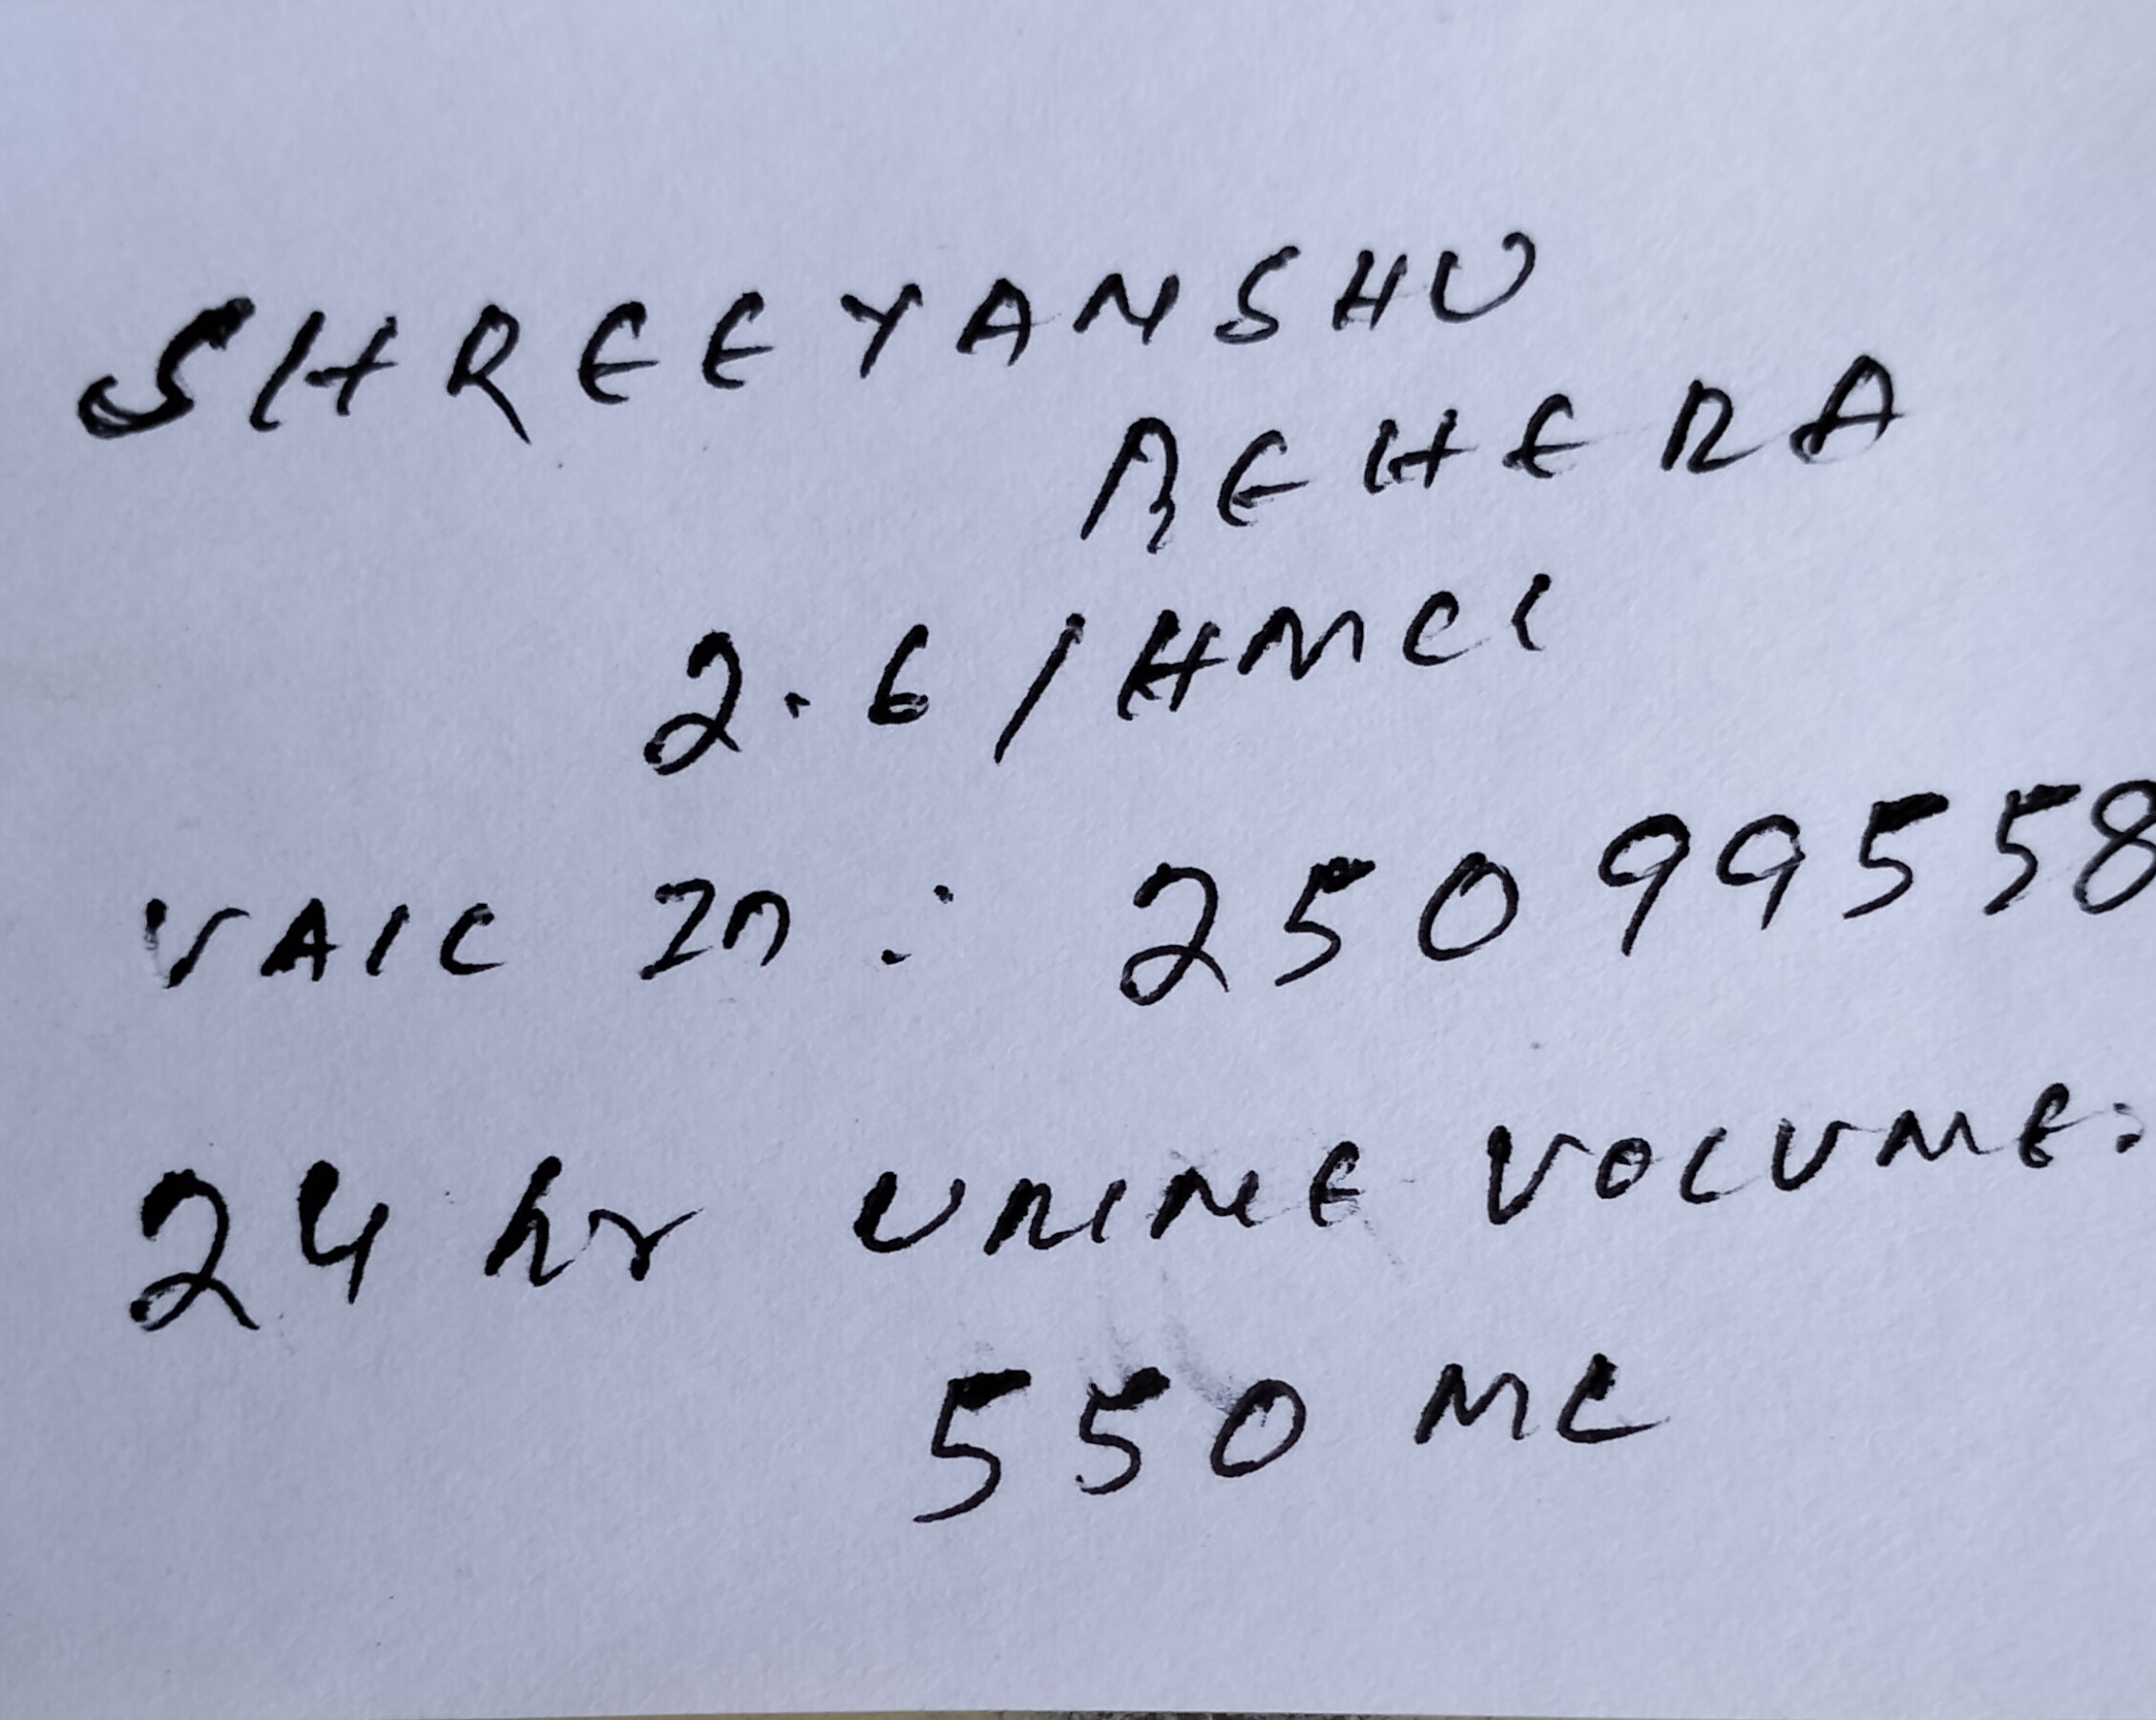 SHREEYANSHU
BEHERA
2.6 / HMCL
VAIC ID : 25099558
24 hr URINE VOLUME:
550 ML